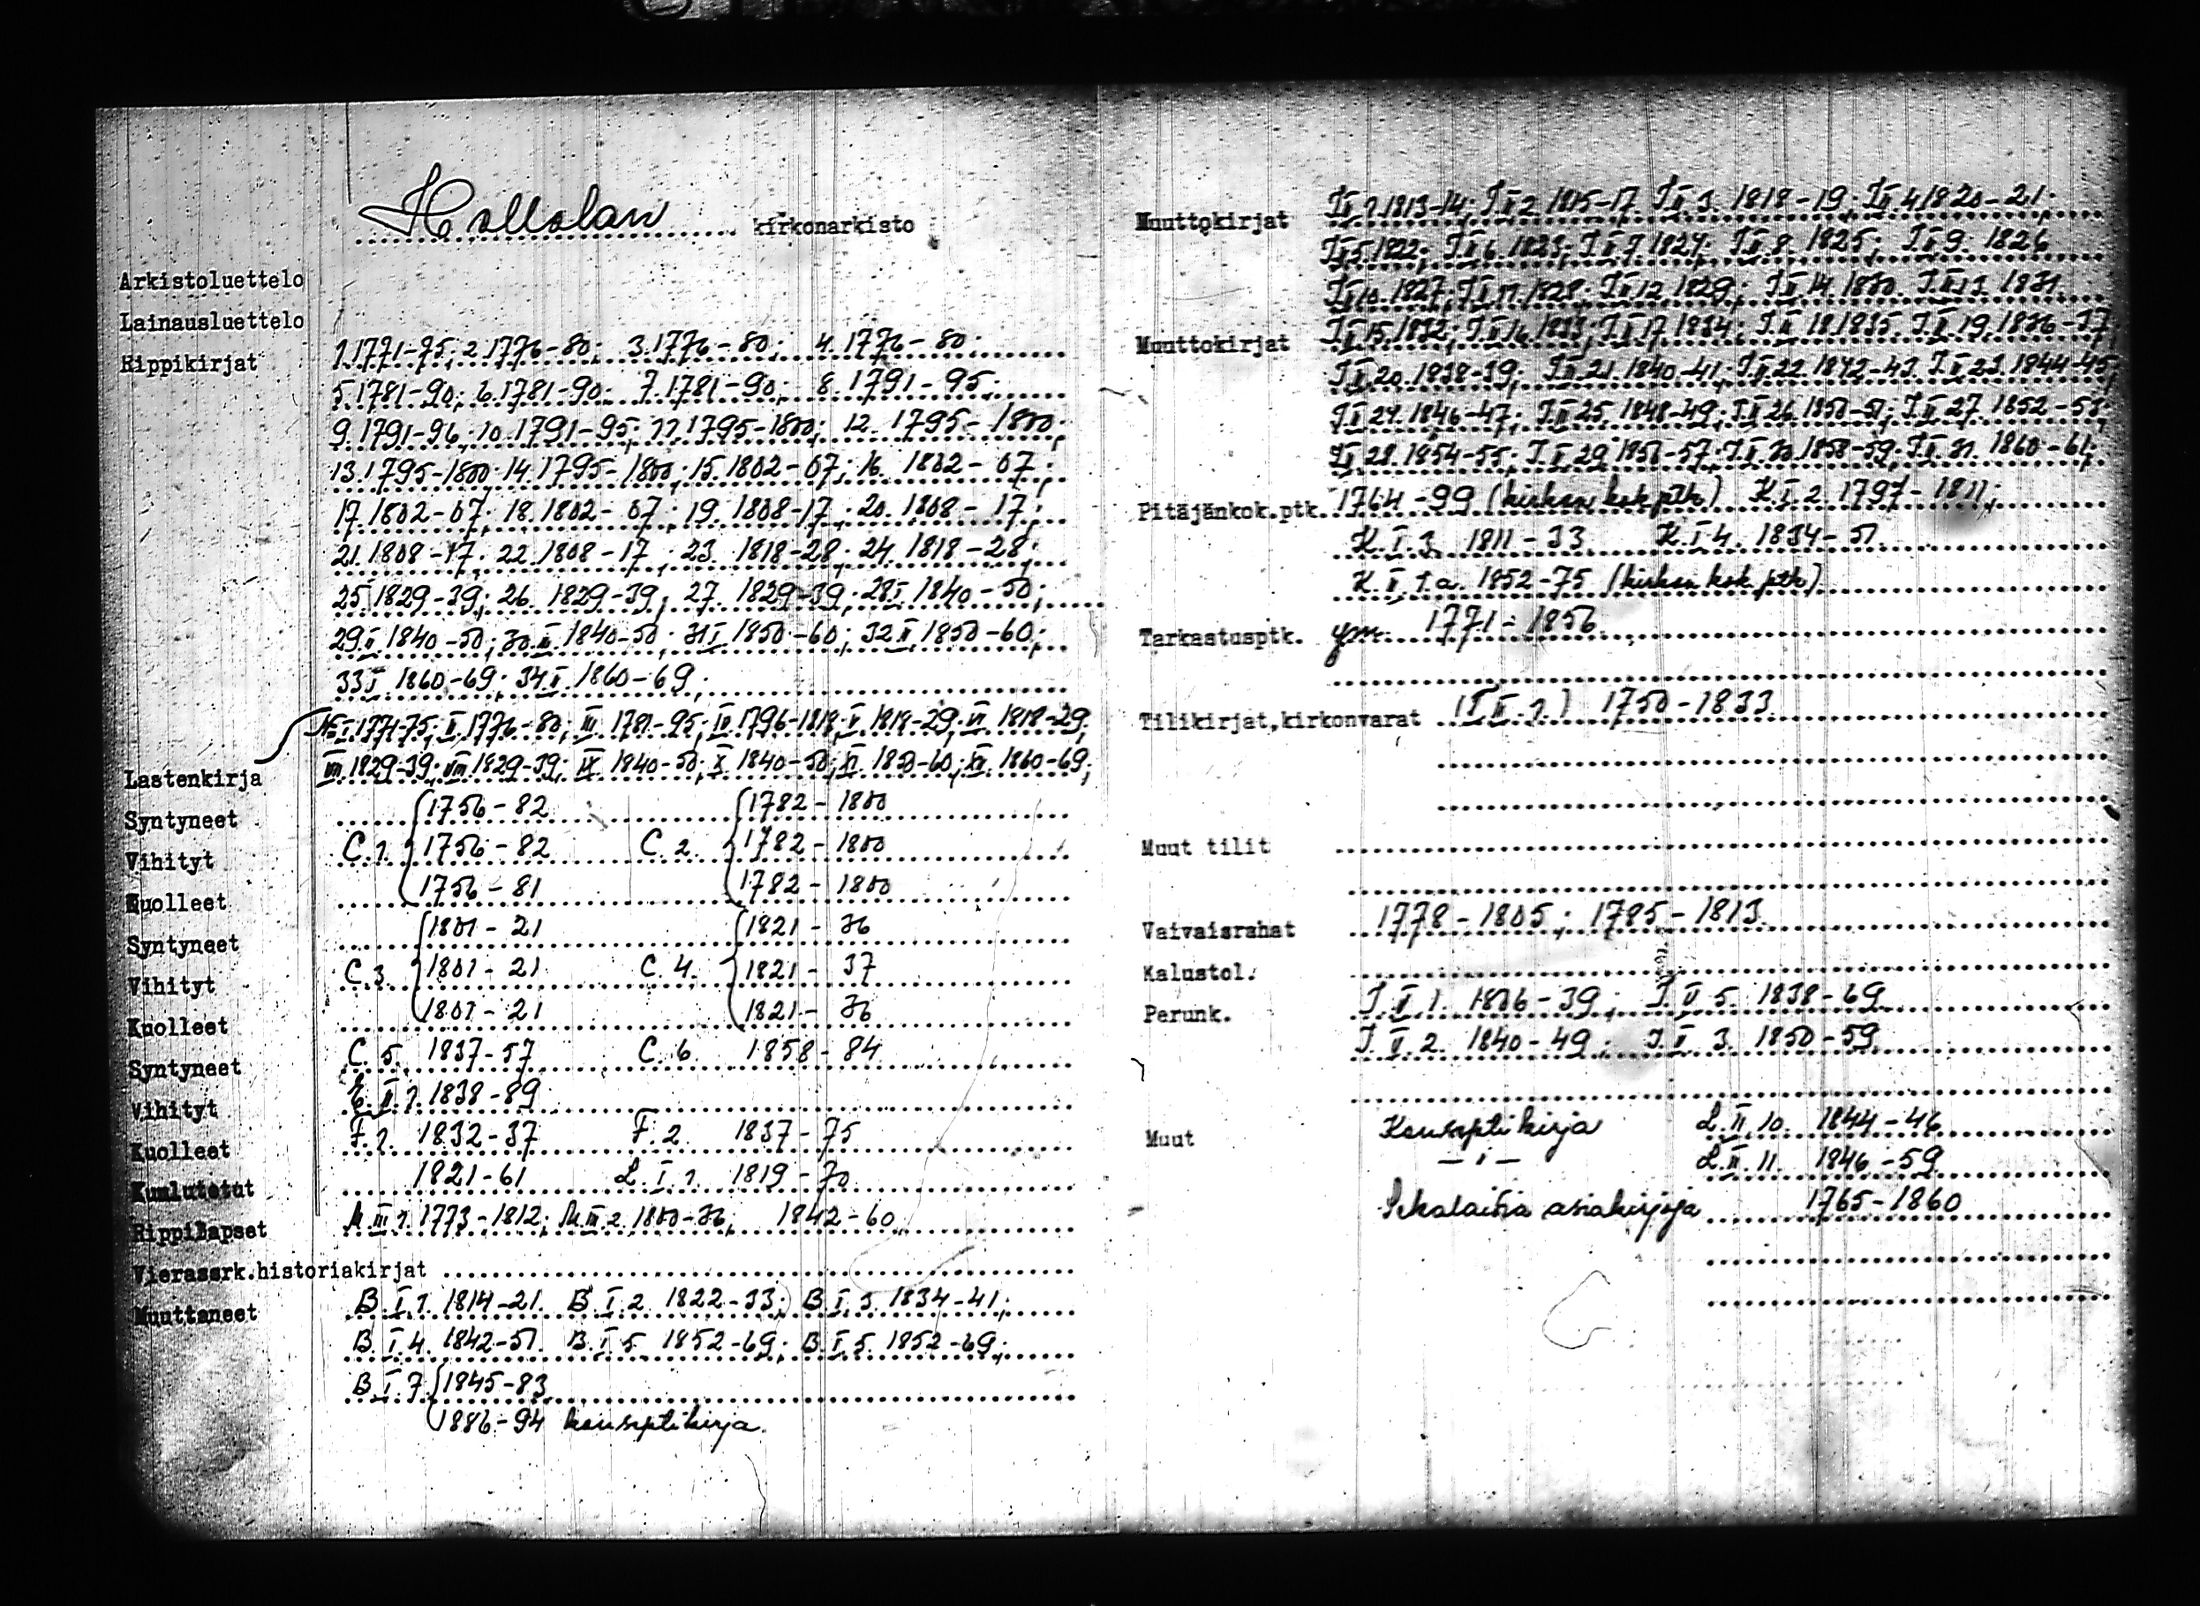 Hollolan kirkonarkisto
Arkistoluettelo
Lainausluettelo
Rippikirjat 1.1771-75; 2.1776-80; 3.1776-80; 4.1776-80;
5.1781-90; 6.1781-90; 7.1781-90; 8.1791-95;
9.1791-96; 10.1791-95; 11.1795-1800; 12.1795-1800;
13.1795-1800; 14.1795-1800; 15.1802-07; 16.1802-07;
17.1802-07; 18.1802-07; 19.1808-17; 20.1808-17;
21.1808-17; 22.1808-17; 23.1818-28; 24.1818-28;
25.1829-39; 26.1829-39; 27.1829-39; 28 I.1840-50;
29 II.1840-50; 30 III.1840-50; 31 I.1850-60; 32 II.1850-60;
33 I.1860-69; 34 II.1860-69;
I.1771-75; II.1776-80; III.1781-95; IV.1796-1818; V.1818-29; VI.1818-29;
Lastenkirja VII.1829-39; VIII.1829-39; IX.1840-50; X.1840-50; XI.1850-60; XII.1860-69;
Syntyneet 1756-82 1782-1800
Vihityt C.1. 1756-82 C.2. 1782-1800
Kuolleet 1756-81 1782-1800
Syntyneet 1801-21 1821-36
Vihityt C.3. 1801-21 C.4. 1821-37
Kuolleet 1801-21 1821-36
Syntyneet C.5. 1837-57 C.6. 1858-84
Vihityt E.II.1. 1838-89
Kuolleet F.1. 1832-37 F.2. 1837-75
Kuulutetut 1821-61 L.I.1. 1819-70
Rippilapset M.III.1. 1773-1812; M.III.2. 1800-36; 1842-60
Vierassrk.historiakirjat
Muuttaneet B.I.1. 1814-21. B.I.2. 1822-33; B.I.3. 1834-41;
B.I.4. 1842-51. B.I.5. 1852-69; B.I.5. 1852-69;
B.I.7. 1845-83
1886-94 konseptikirja.
Muuttokirjat I II 1 1813-14; I II 2. 1815-17. I II 3. 1818-19; I II 4 1820-21;
I II 5 1822; I II 6. 1823; I II 7. 1824; I II 8. 1825; I II 9. 1826
I II 10. 1827; I II 11. 1828; I II 12. 1829; I II 14. 1830. I II 13. 1831.
Muuttokirjat I II 15. 1832; I II 16. 1833; I II 17. 1834; I II 18. 1835. I II 19. 1836-37;
I II 20. 1838-39; I II 21. 1840-41; I II 22. 1842-43. I II 23. 1844-45;
I II 24. 1846-47; I II 25. 1848-49; I II 26. 1850-51; I II 27. 1852-53;
I II 28. 1854-55; I II 29. 1856-57; I II 30. 1858-59; I II 31. 1860-61;
Pitäjänkok.ptk. 1764-99 (kirkon kok.ptk) K.I.2. 1797-1811;
K.I.3. 1811-33 K.I.4. 1834-51.
K.II.1.a. 1852-75 (kirkon kok.ptk)
Tarkastusptk. ym. 1771-1856
Tilikirjat,kirkonvarat 1750-1833
Muut tilit
Vaivaisrahat 1778-1805; 1785-1813
Kalustol.
Perunk. I.V.1. 1806-39; I.V.5. 1838-69
I.V.2. 1840-49; I.V.3. 1850-59
Muut Konseptikirja L.II.10. 1844-46
— " — L.II.11. 1846-59
Sekalaisia asiakirjoja 1765-1860